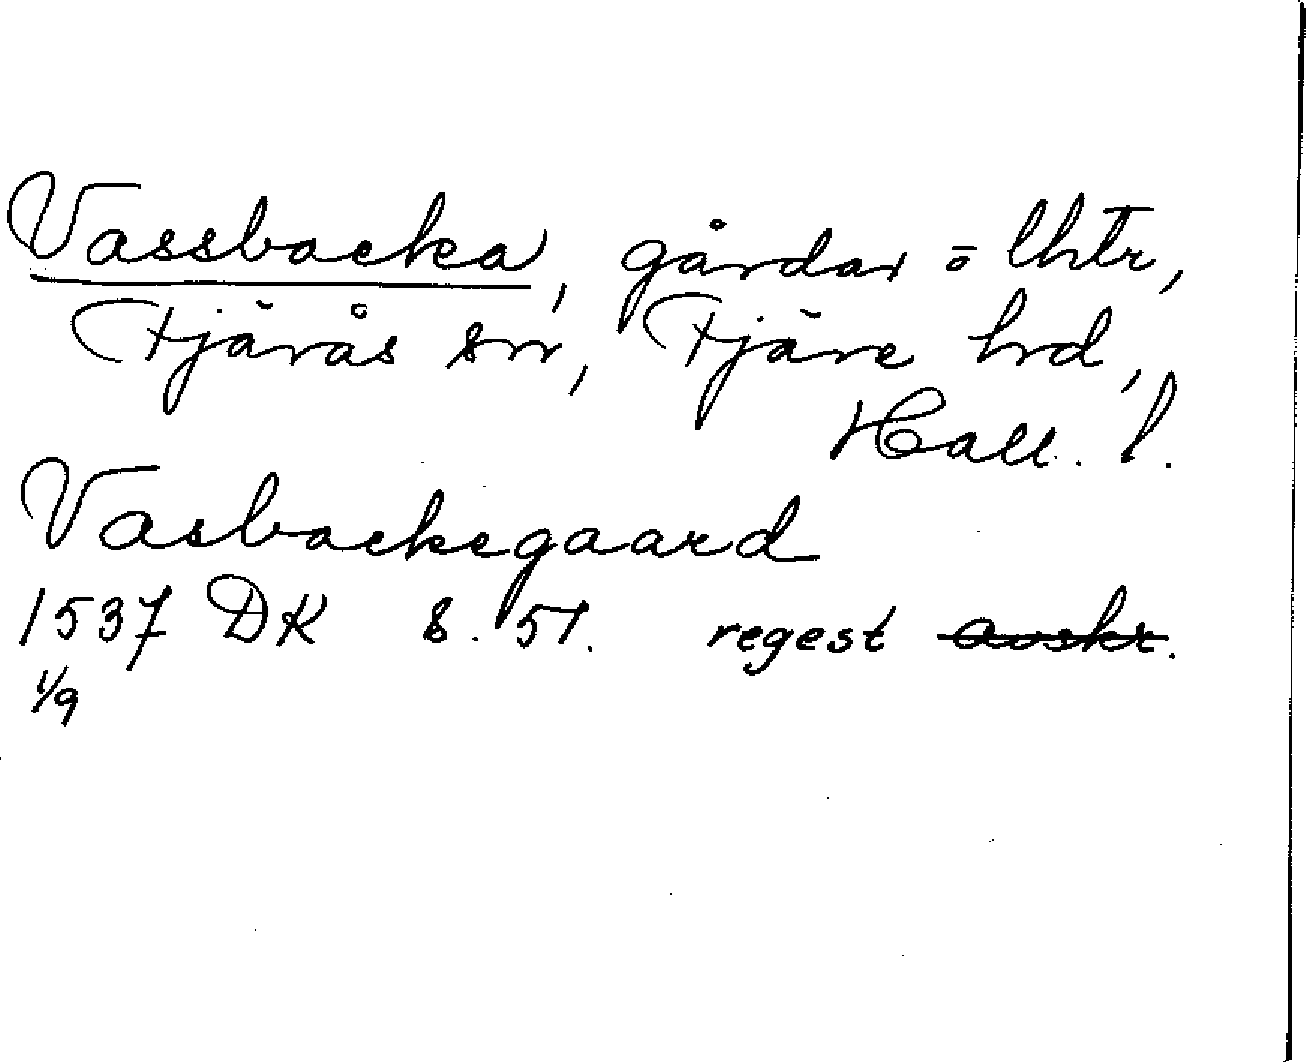 Vassbacka, gårdar o lhtr,
Tjärås sn, Fjäre hd,
Hall. l.
Vasbackegaard
1537 DK s. 51. regest avskr.
1/9